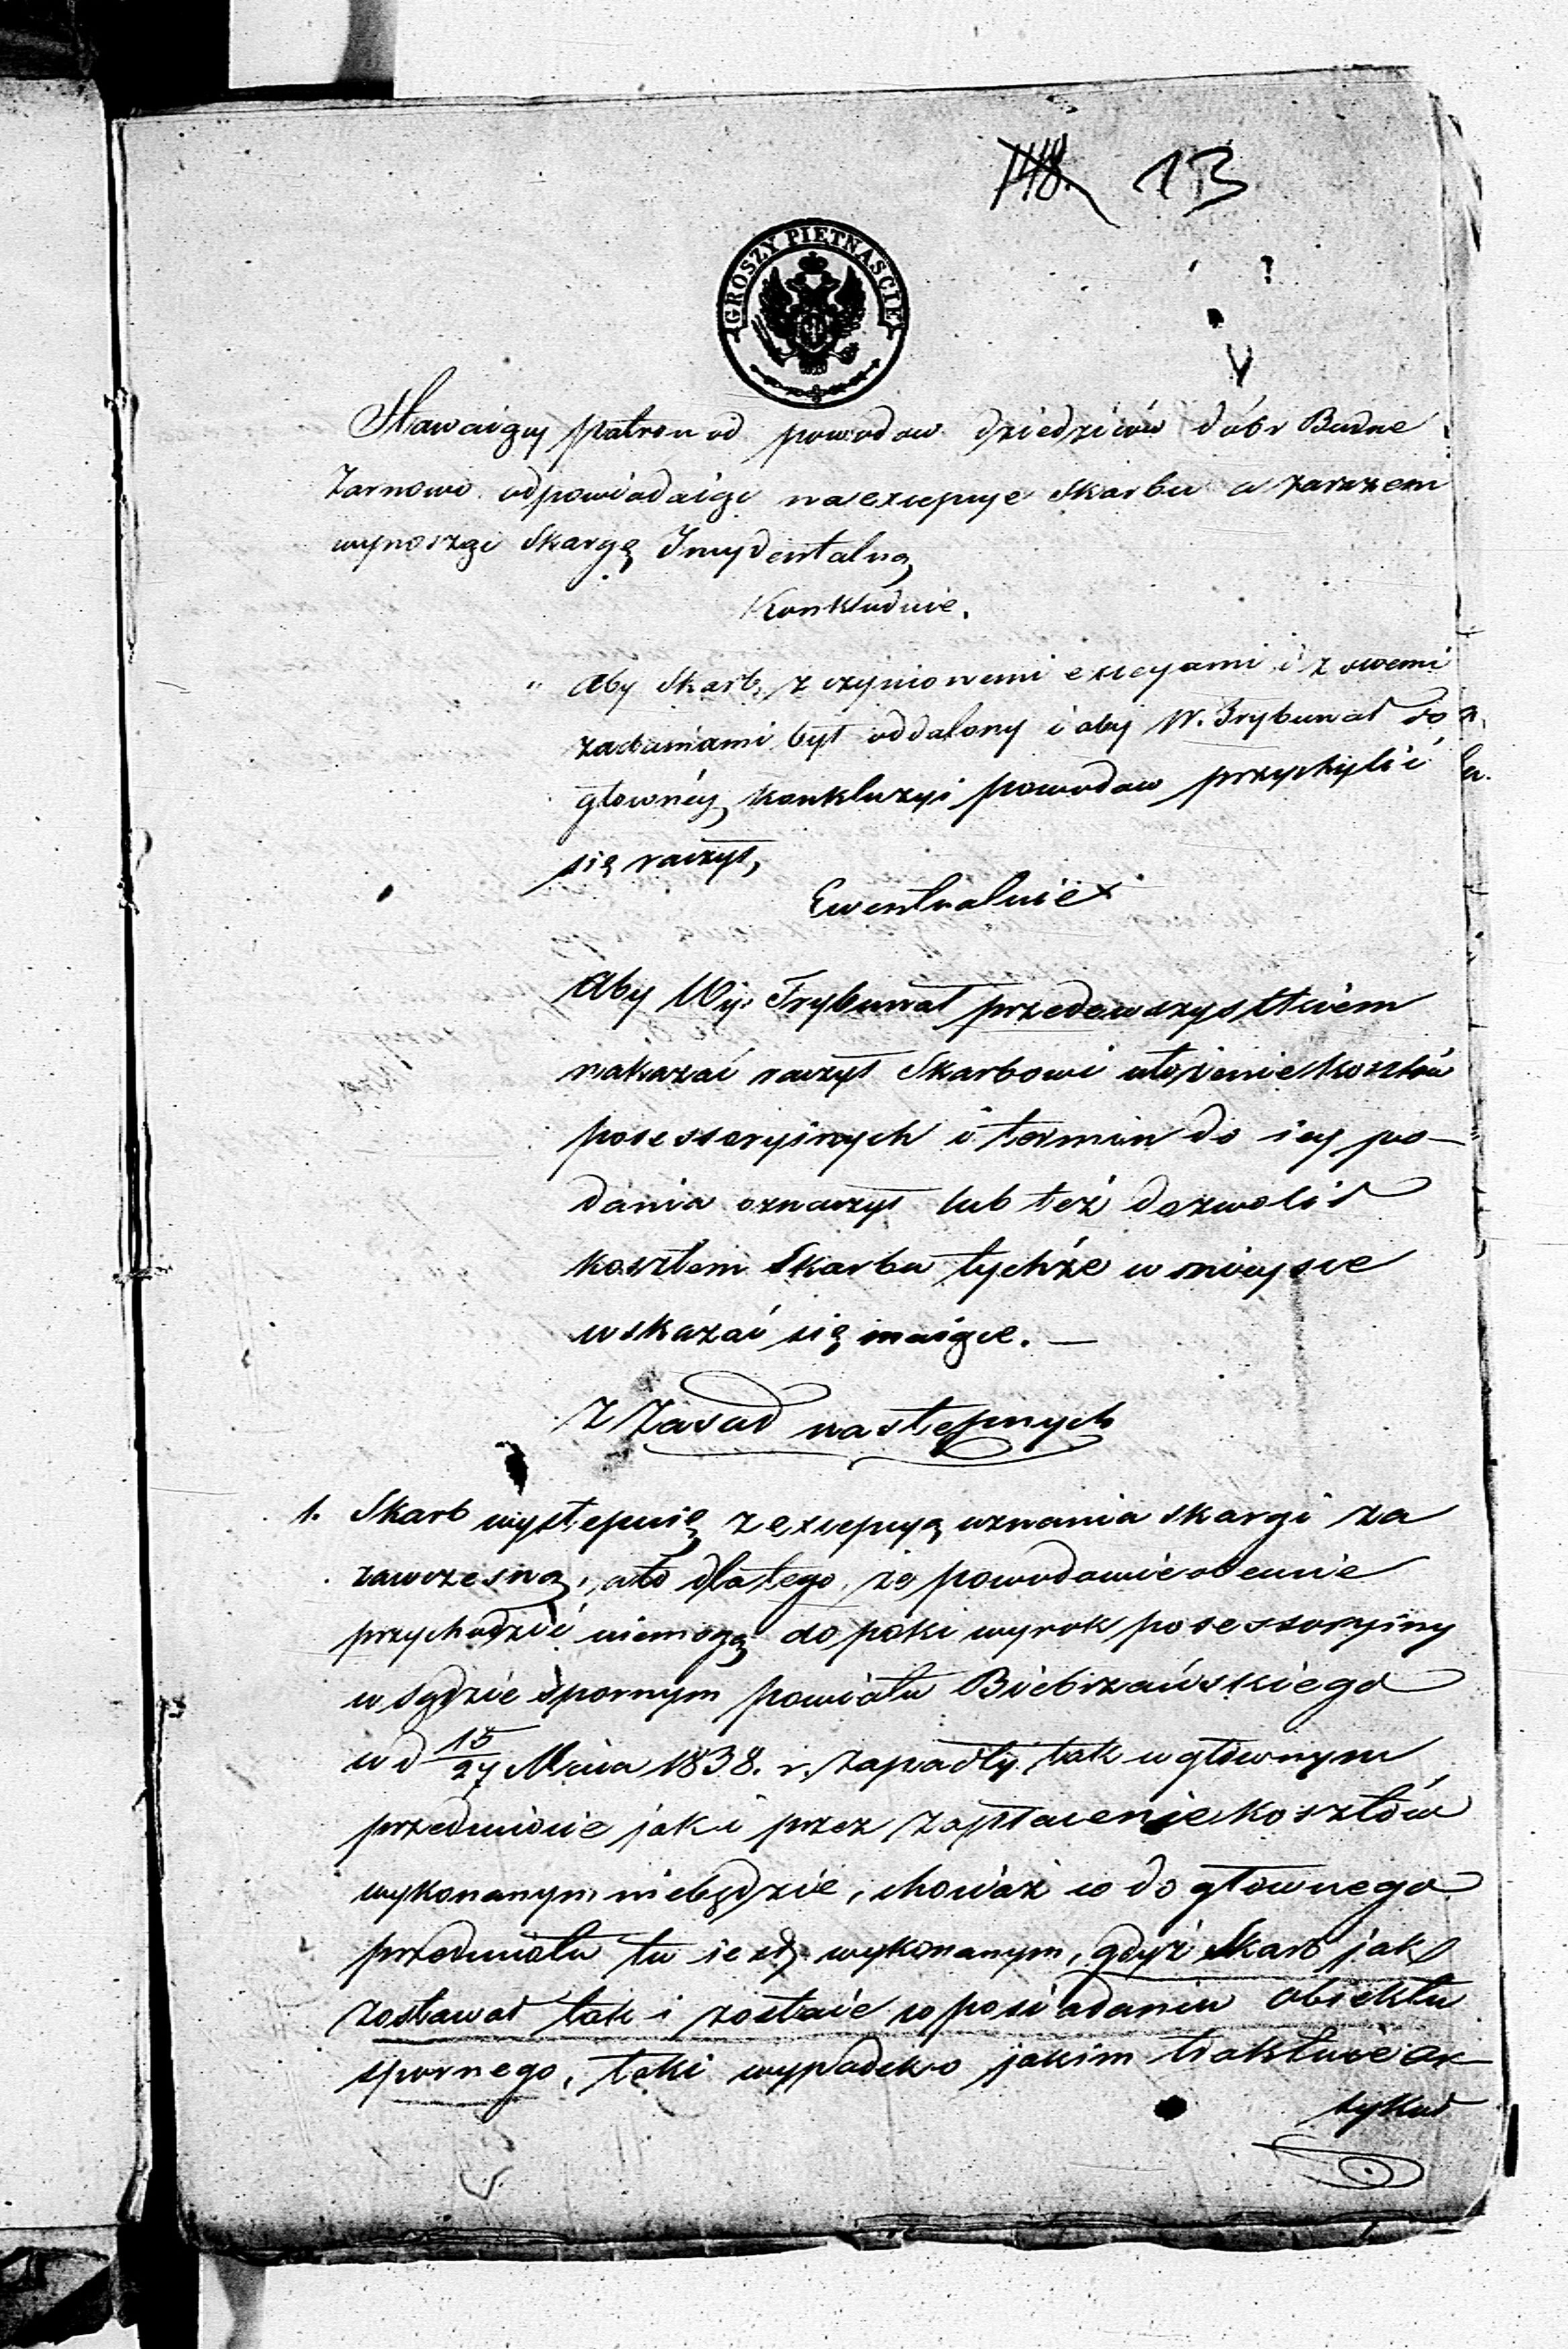 148. 13
GROSZY PIĘTNAŚCIE
Stawaiący patron od powodow dziedziców dóbr Budne
Żarnowo odpowiadaiąc na excepcye Skarbu a zarazem
wynosząc Skargę Incydentalną
Konkluduie.
" Aby Skarb, z czynionemi excepcyami i z swemi
żądaniami był oddalony i aby W. Trybunał do
głownéy konkluzyi powodow przychylić
się raczył,
Ewentualnie
Aby Wy. Trybunał przedewszystkiem
nakazać raczył Skarbowi ułożenie kosztów
possessoryinych i termin do iey po-
dania oznaczył lub też dozwolił
kosztem Skarbu tychże w mieysce
wskazać się maiące. —
Z Zasad następnych
1. Skarb występuię z excepcyą uznania skargi za
zawczesną, a to dlatego, że powodowie obecnie
przychodzić niemogą dopóki wyrok possessoryiny
w sądzie spornym powiatu Biebrzańskiego
w d 15/27 Maia 1838. r. zapadły, tak w głównym
przedmiocie jak i przez zapłacenie kosztów
wykonanym niebędzie, chociaż co do głownego
przedmiotu tu iest wykonanym, gdyż Skarb jak
zostawał tak i zostaie w posiadaniu obiektu
spornego, taki wypadek o jakim traktuie ar-
tykuł